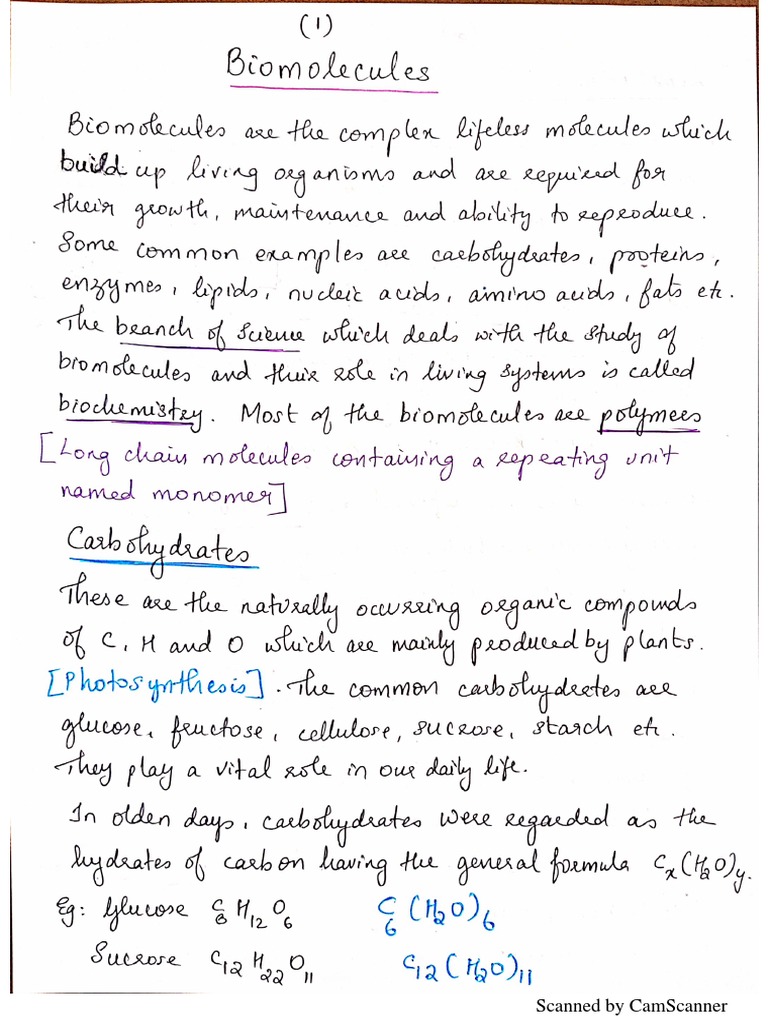 (1)
Biomolecules
Biomolecules are the complex lifeless molecules which
build up living organisms and are required for
their growth, maintenance and ability to reproduce.
Some common examples are carbohydrates, proteins,
enzymes, lipids, nucleic acids, amino acids, fats etc.
The branch of science which deals with the study of
biomolecules and their role in living systems is called
biochemistry. Most of the biomolecules are polymers
[Long chain molecules containing a repeating unit
named monomer]
Carbohydrates
These are the naturally occurring organic compounds
of C, H and O which are mainly produced by plants.
[Photosynthesis]. The common carbohydrates are
glucose, fructose, cellulose, sucrose, starch etc.
They play a vital role in our daily life.
In olden days, carbohydrates were regarded as the
hydrates of carbon having the general formula Cx(H2O)y.
Eg: Glucose C6H12O6 C6(H2O)6
Sucrose C12H22O11 C12(H2O)11
Scanned by CamScanner